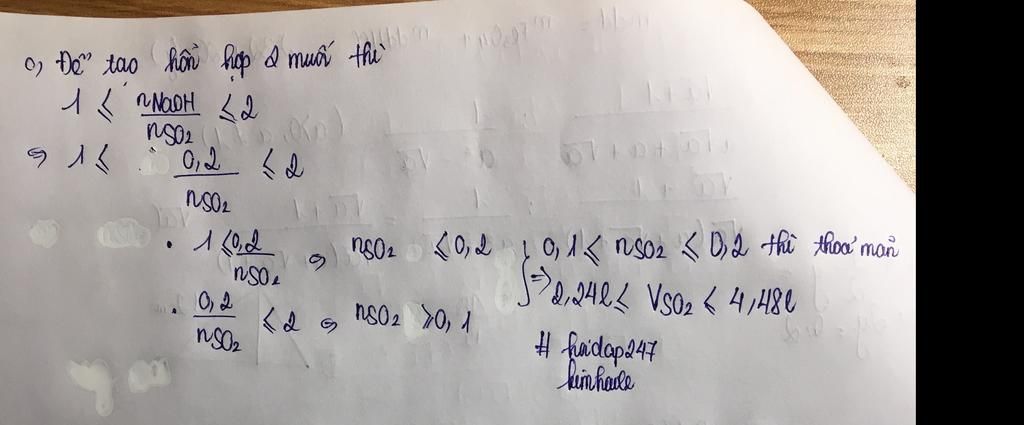 c, Để tạo hỗn hợp 2 muối thì
1 ≤ nNaOH/nSO2 ≤ 2
⇔ 1 ≤ 0,2/nSO2 ≤ 2
• 1 ≤ 0,2/nSO2 ⇔ nSO2 ≤ 0,2
• 0,2/nSO2 ≤ 2 ⇔ nSO2 ≥ 0,1
} ⇒ 0,1 ≤ nSO2 ≤ 0,2 thì thoả mãn
2,24l ≤ VSO2 ≤ 4,48l
# hoidap247
kimhaule